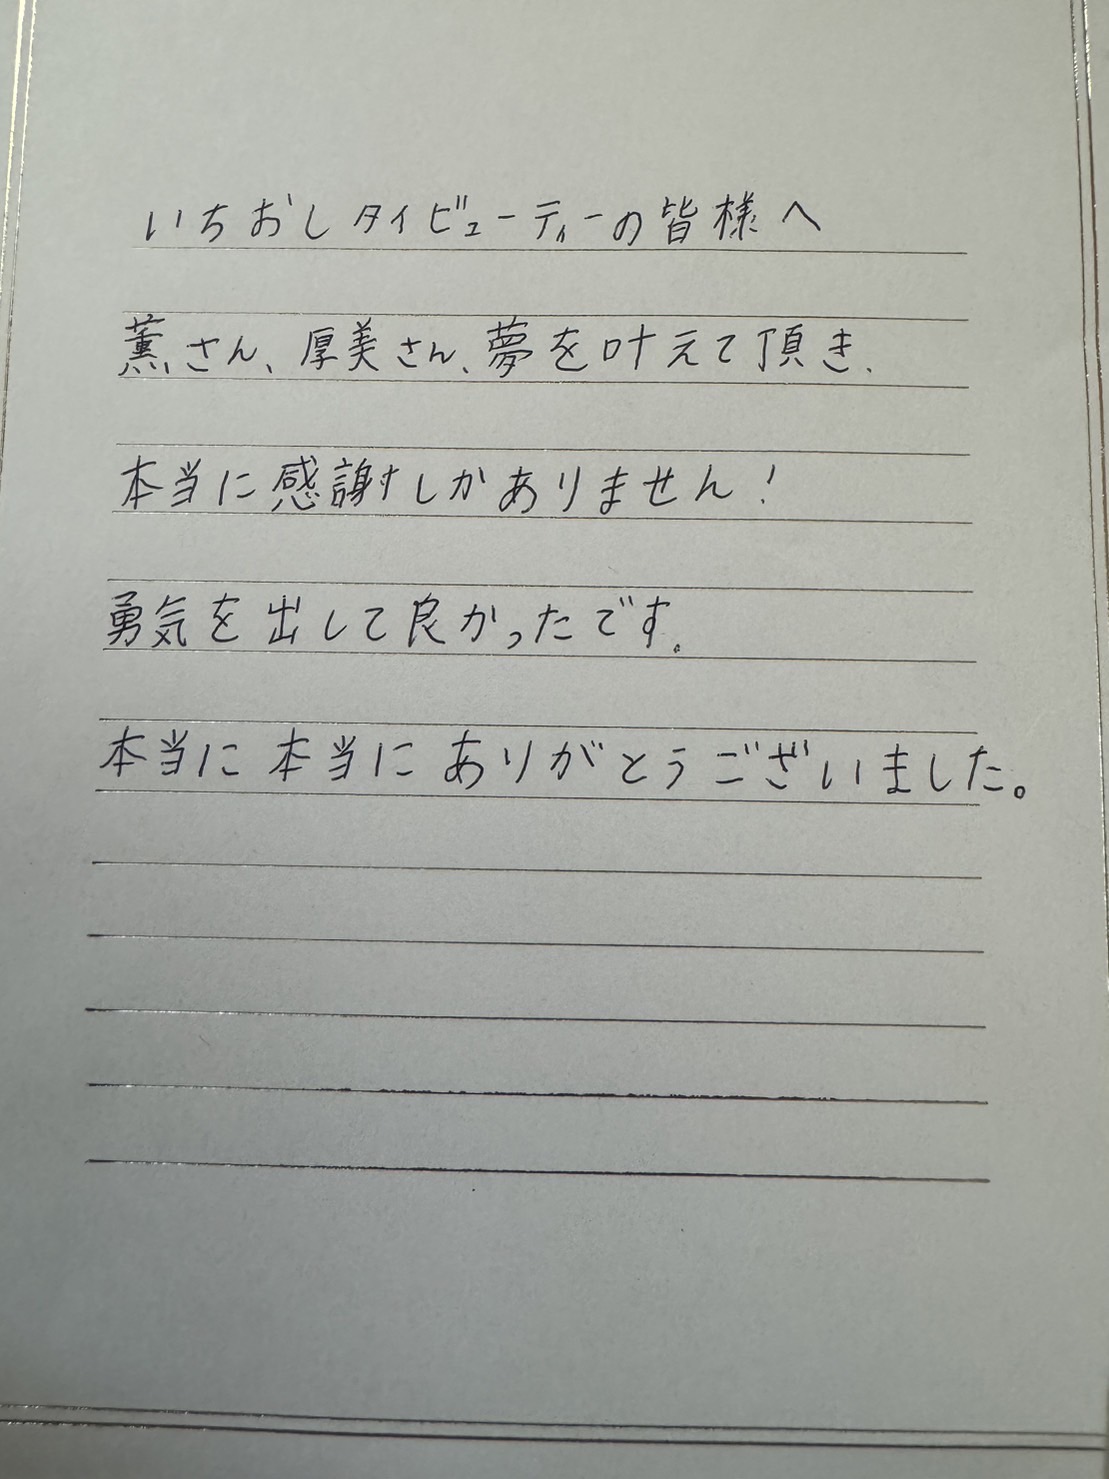 いちおしタイビューティーの皆様へ
薫さん、厚美さん、夢を叶えて頂き、
本当に感謝しかありません!
勇気を出して良かったです。
本当に本当にありがとうございました。